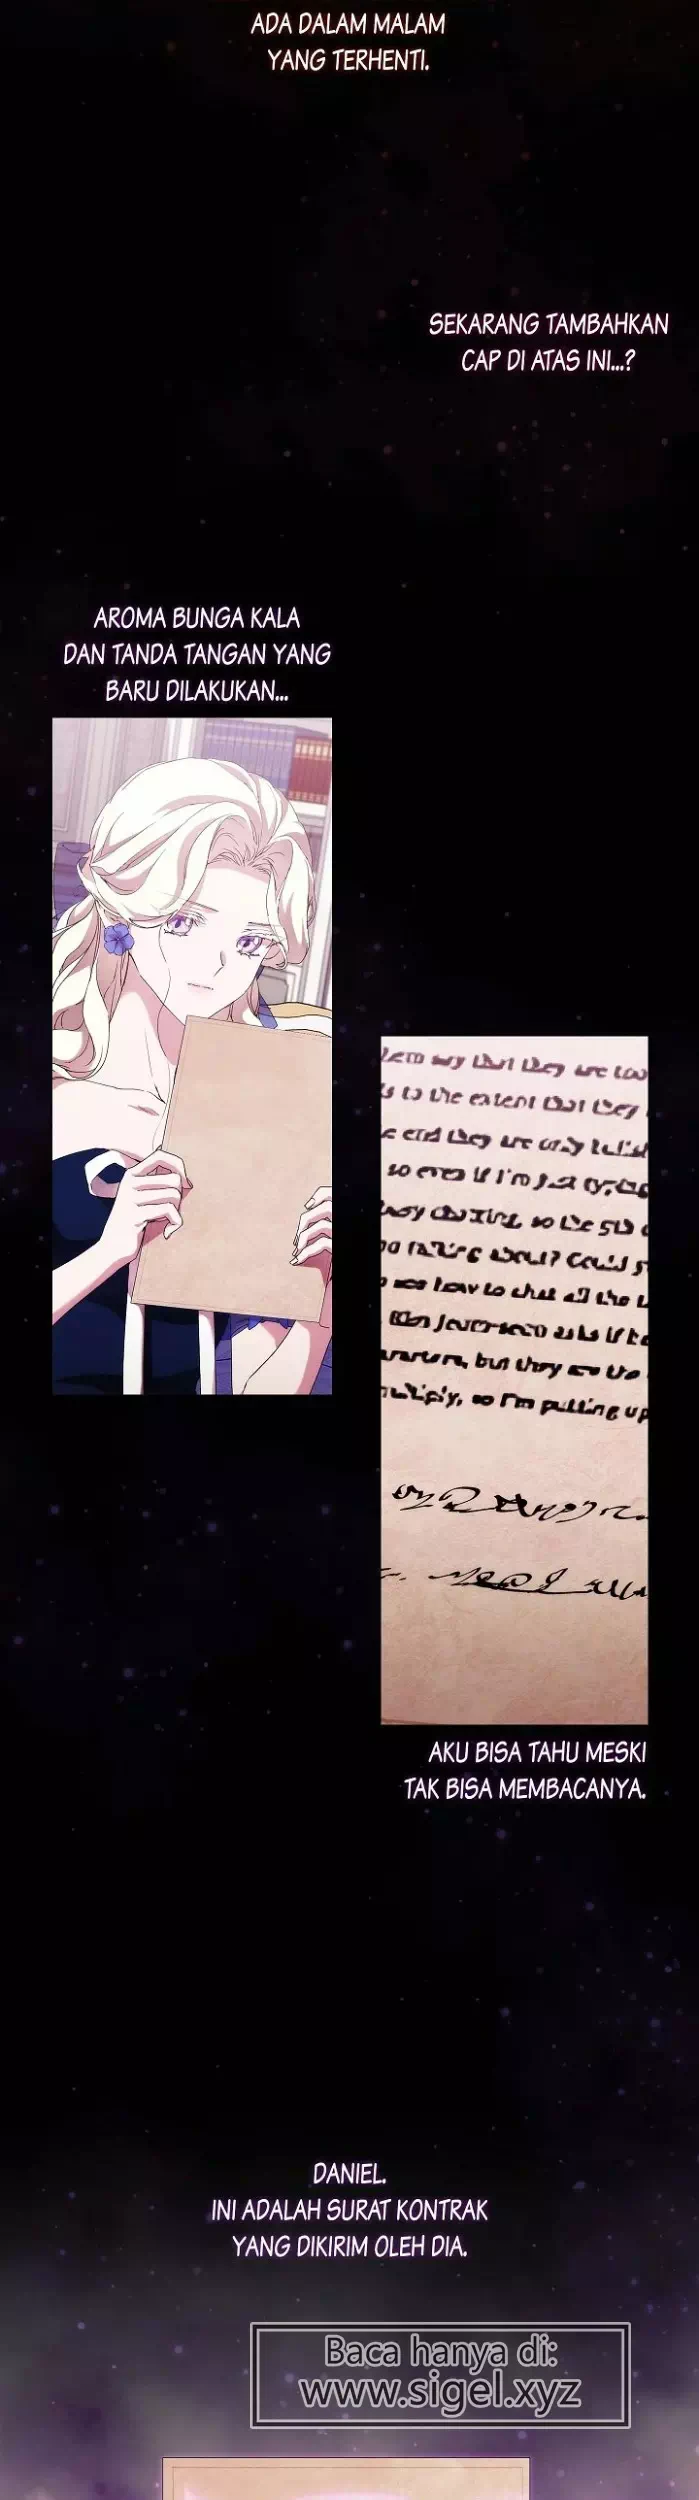 ADA DALAM MALAM
YANG TERHENTI.
SEKARANG TAMBAHKAN
CAP DI ATAS INI...?
AROMA BUNGA KALA
DAN TANDA TANGAN YANG
BARU DILAKUKAN...
say that they are too
to the extent that they
end they are only
so even if I'm just
so the
about? Could
how to chat all the
asks if
but they are the
so I'm putting up
AKU BISA TAHU MESKI
TAK BISA MEMBACANYA.
DANIEL.
INI ADALAH SURAT KONTRAK
YANG DIKIRIM OLEH DIA.
Baca hanya di:
www.sigel.xyz